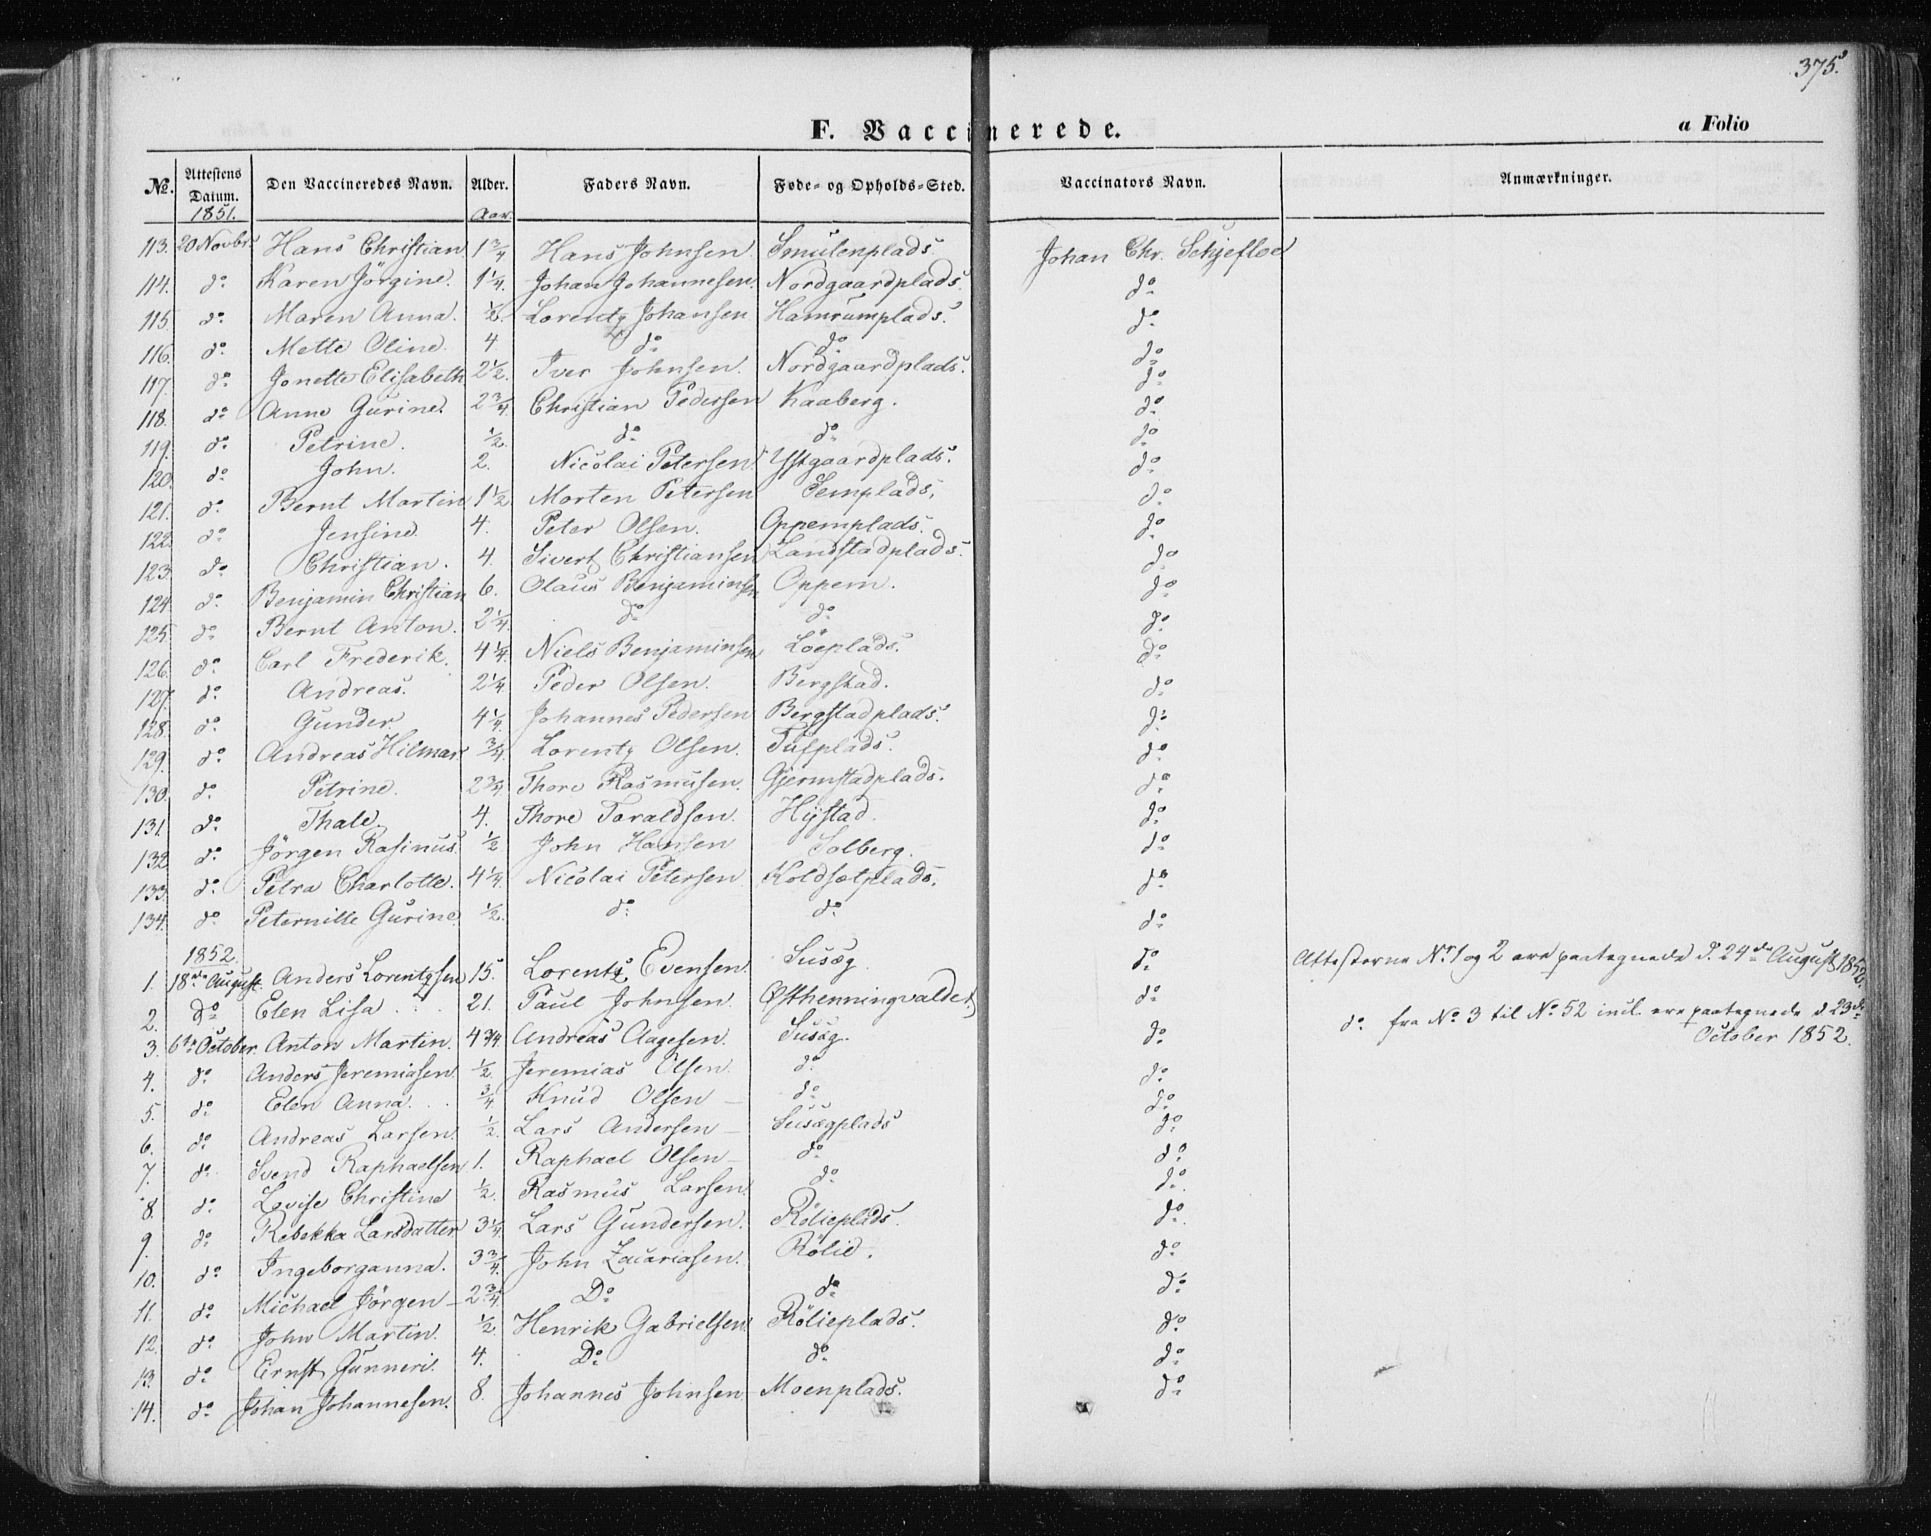 375.
F. Vaccinerede.
a Folio
No. Attestens Datum. Den Vaccineredes Navn. Alder. Faders Navn. Føde- og Opholds-Sted. Vaccinators Navn. Anmærkninger.
1851. Aar.
113. 20 Novbr. Hans Christian 1 3/4 Hans Johnsen. Smulenplads. Johan Chr. Schjefloe
114. do Karen Jörgine. 1 1/4. Johan Johannesen. Nordgaardplads. do
115. do Maren Anna. 1/2. Lorentz Johansen Hamrumplads. do
116. do Mette Oline. 4 do do do
117. do Jonette Elisabeth 2 1/2. Iver Johnsen. Nordgaardplads. do
118. do Anne Gurine. 2 3/4. Christian Pedersen Kaaberg. do
119. do Petrine. 1/2. do do do
120. do John. 2. Nicolai Petersen. Ystgaardplads. do
121. do Bernt Martin 1 1/2 Morten Petersen Semplads. do
122. do Jensine. 4. Peter Olsen. Oppemplads. do
123. do Christian. 4. Sivert Christiansen Landstadplads. do
124. do Benjamin Christian 6. Olaus Benjaminsen Oppem. do
125. do Bernt Anton. 2 1/4. do do do
126. do Carl Frederik. 4 1/4. Niels Benjaminsen Löeplads. do
127. do Andreas. 2 1/4 Peder Olsen. Bergstad. do
128. do Gunder 4 1/4. Johannes Pedersen Bergstadplads. do
129. do Andreas Hilmar 3/4. Lorentz Olsen. Tufplads. do
130. do Petrine. 2 3/4. Thore Rasmusen. Gjermstadplads. do
131. do Thale. 4. Thore Taraldsen. Hÿstad. do
132 do Jörgen Rasinus. 1/2 John Hansen Solberg. do
133. do Petra Charlotte. 4 1/4. Nicolai Petersen Koldsetplads. do
134. do Peternille Gurine 1/2. do do do
1852.
1. 18de August. Anders Lorentzsen 15. Lorentz Evensen. Susæg do Attesterne No 1 og 2 ere paategnede d. 24de August 1852.
2. Do Elen Lisa . . . 21. Paul Johnsen. Østhenningvaldet. do
3. 6te October. Anton Martin. 4 3/4. Andreas Aagesen. Susæg. do do fra No 3 til No 52 incl. ere paategnede d 23de October 1852.
4. do Anders Jeremiasen. 1/2 Jeremias Olsen. do do
5. do Elen Anna. . . 3/4 Knud Olsen – do do
6. do Andreas Larsen. 1/2. Lars Andersen – Susægplads do
7. do Svend Raphaelsen 1. Raphael Olsen – do do
8. do Lovise Christine 1/2. Rasmus Larsen. do do
9. do Rebekka Larsdatter 3 1/4. Lars Gundersen. Rölieplads. do
10. do Ingeborganna. 3 3/4. John Zacariasen. Rölie. do
11. do Michael Jörgen – 2 3/4 Do do do
12. do John Martin. 1/2 Henrik Gabrielsen. Rölieplads. do
13. do Ernst Gunneri. 4. Do do do
14. do Johan Johannesen. 8. Johannes Johnsen Moenplads. do